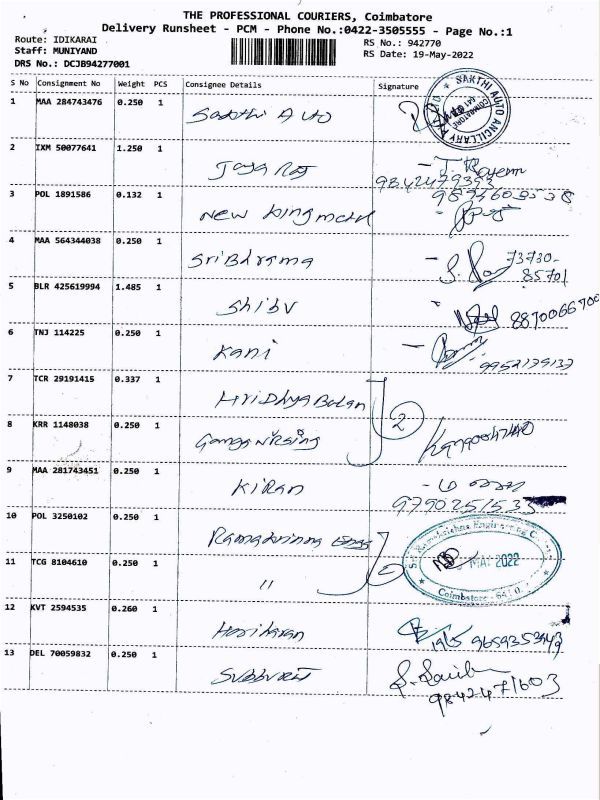 THE PROFESSIONAL COURIERS, Coimbatore
Delivery Runsheet - PCM - Phone No.:0422-3505555 - Page No.:1
Route: IDIKARAI RS No.: 942770
Staff: MUNIYAND RS Date: 19-May-2022
DRS No.: DCJB94277001
S No Consignment No Weight PCS Consignee Details Signature
1 MAA 284743476 0.250 1 Auto
SAKTHI AUTO ANCILLARY
COIMBATORE
2 IXM 50077641 1.250 1 Jaya Raj
9842479353
3 POL 1891586 0.132 1 New king
4 MAA 564344038 0.250 1 Sri Bhrama 73730-
85701
5 BLR 425619994 1.485 1 Shibu 8870066700
6 TNJ 114225 0.250 1 Kani 9952179133
7 TCR 29191415 0.337 1 Hridhya Balan
2
8 KRR 1148038 0.250 1 Ganga Nursing
9 MAA 281743451 0.250 1 Kiran
9790251533
10 POL 3250102 0.250 1
Sri Ramakrishna Engineering
MAY 2022
Coimbatore - 641 0
11 TCG 8104610 0.250 1 "
12 KVT 2594535 0.260 1 Hariharan
9659353949
13 DEL 70059832 0.250 1
9842471603